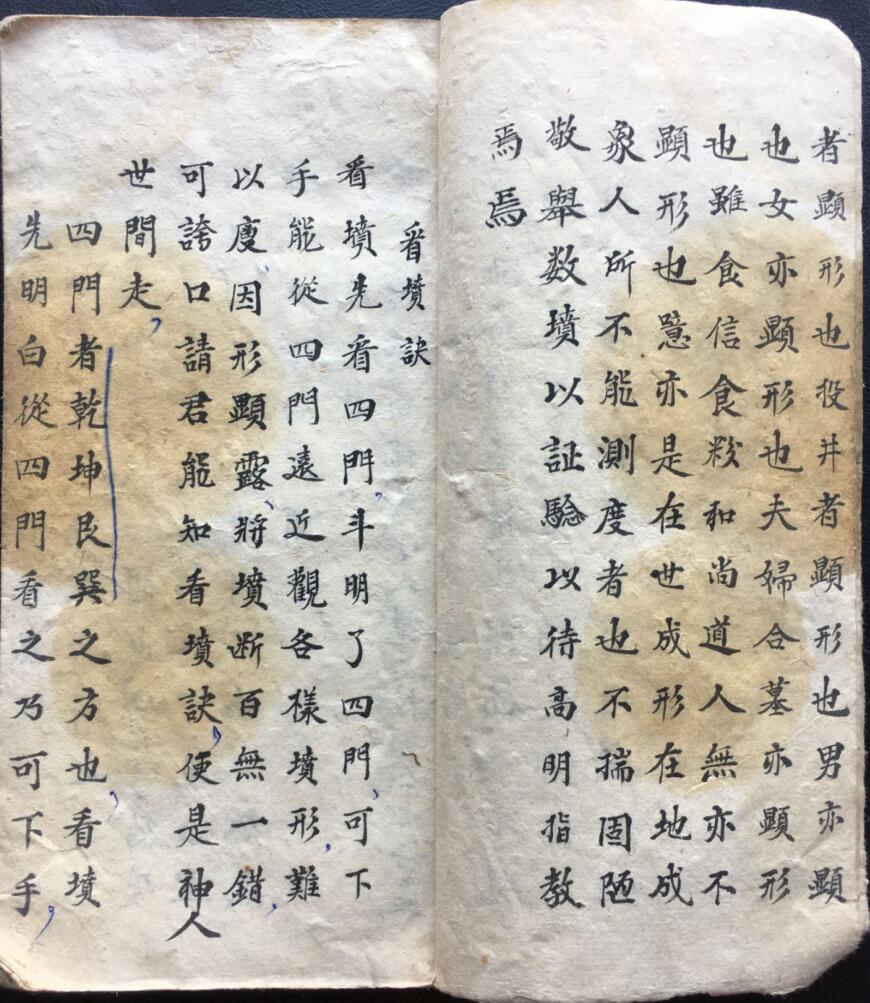 者顯形也投井者顯形也男亦顯
也女亦顯形也夫婦合墓亦顯形
也雖食信食粉和尚道人無亦不
顯形也噫亦是在世成形在地成
象人所不能測度者也不揣固陋
敬舉数墳以証驗以待高明指教
焉焉
看墳訣
看墳先看四門斗明了四門可下
手能從四門遠近觀各樣墳形難
以度因形顯露將墳断百無一錯
可誇口請君能知看墳訣便是神人
世間走
四門者乾坤艮巽之方也看墳
先明白從四門看之乃可下手